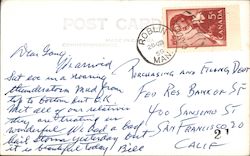 POST CARD
ROBLIN
MAN
CANADA
5¢
Dear Gang,
Arrived
but ev in a roaring
thunderstorm mud from
top to bottom but O.K.
Met all of our relatives
they are treating us
wonderful. We had a bad
hail storm yesterday but
it is beautiful today! Bill
Purchasing and Filing Dept
Fed Res Bank of SF
400 Sansome St
San Francisco 20
Calif